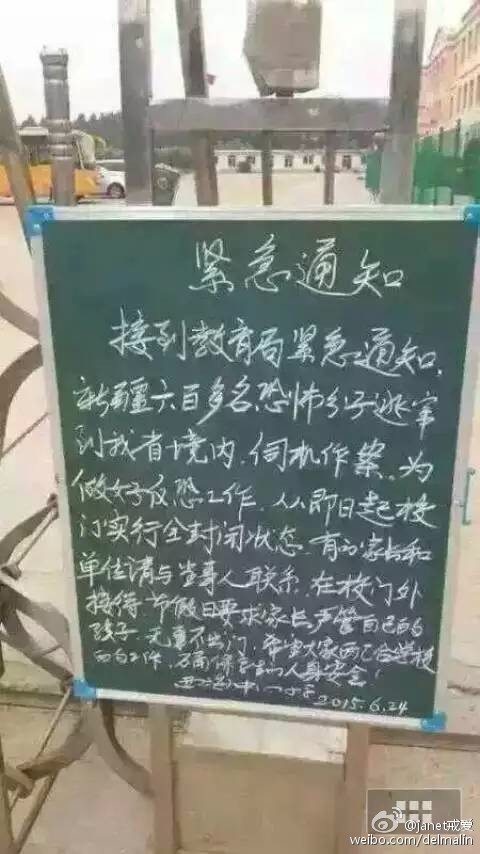 紧急通知
接到教育局紧急通知,
新疆六百多名恐怖分子逃窜
到我省境内,伺机作案。为
做好反恐工作,从即日起校
门实行全封闭状态,有事家长和
单位请与当事人联系,在校门外
接待,节假日要求家长严管自己的
孩子,无事不出门,希望大家配合学校
的工作,确保学生人身安全!
2015.6.24
@janet戒爱
weibo.com/delmalin